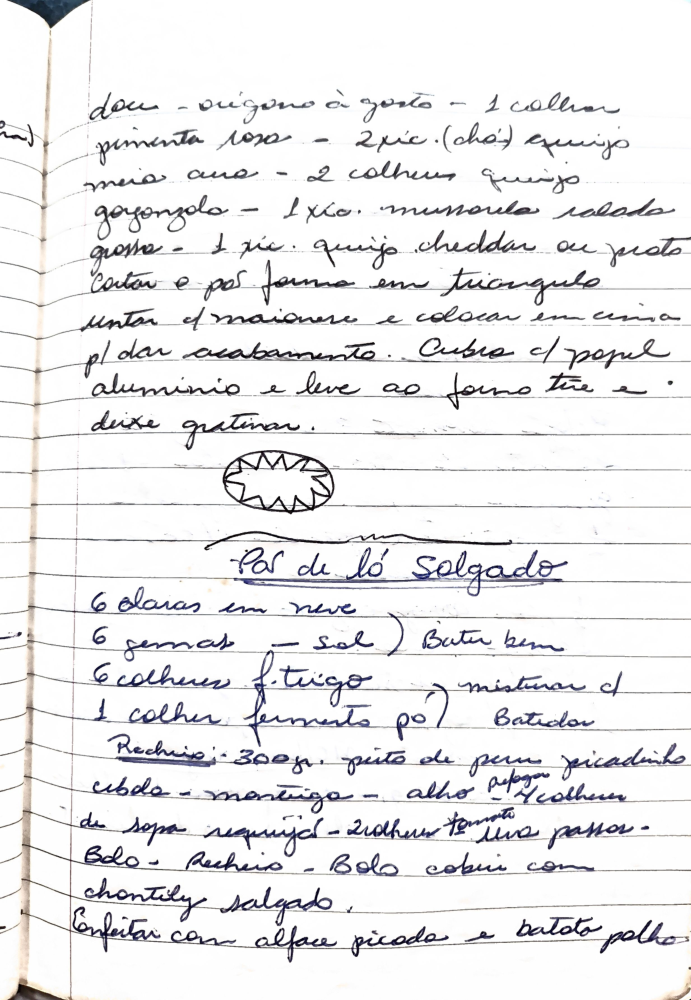 dou - orégano à gosto - 1 colher
pimenta rosa - 2 xic. (chá) queijo
meia cura - 2 colheres queijo
gorgonzola - 1 xic. mussarela ralada
grossa - 1 xic. queijo cheddar ou prato
Cortar o pão forma em triangulo
untar c/ maionese e colocar em cima
p/ dar acabamento. Cubra c/ papel
aluminio e leve ao forno tire e
deixe gratinar.
Pão de ló Salgado
6 claras em neve
6 gemas - sal ) Bater bem
6 colheres f. trigo ) misturar c/
1 colher fermento pó ) Batedor
Recheio: - 300 gr. peito de peru picadinho
cebola - manteiga - alho refogar - 4 colheres
de sopa requeijão - 2 colheres tomate uva passas -
Bolo - Recheio - Bolo cobrir com
chantily salgado.
Enfeitar com alface picada e batata palha